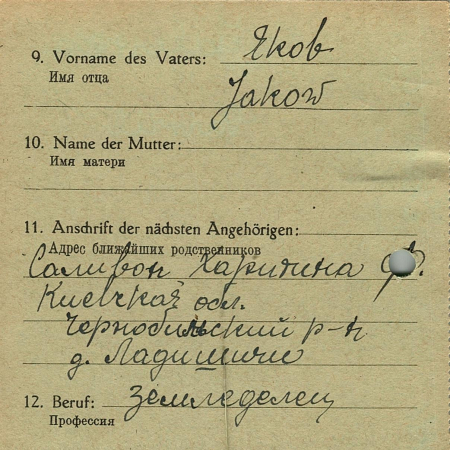 9. Vorname des Vaters: Яков
Имя отца
Jakow
10. Name der Mutter:
Имя матери
11. Anschrift der nächsten Angehörigen:
Адрес ближайших родственников
Саливон Харитина Ф.
Киевская обл.
Чернобильский р-н
д. Ладижичи
12. Beruf: Земледелец
Профессия